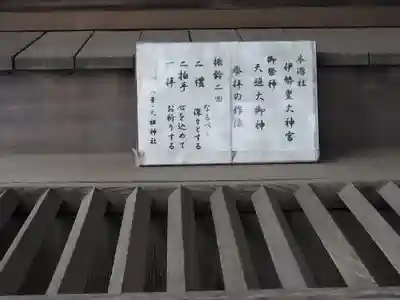 本源社
伊勢皇大神宮
御祭神
天照大御神
参拝の作法
振鈴二回
なるべく
二禮
深々とする
二拍手
心を込めて
一拝
お祈りする
天祖神社